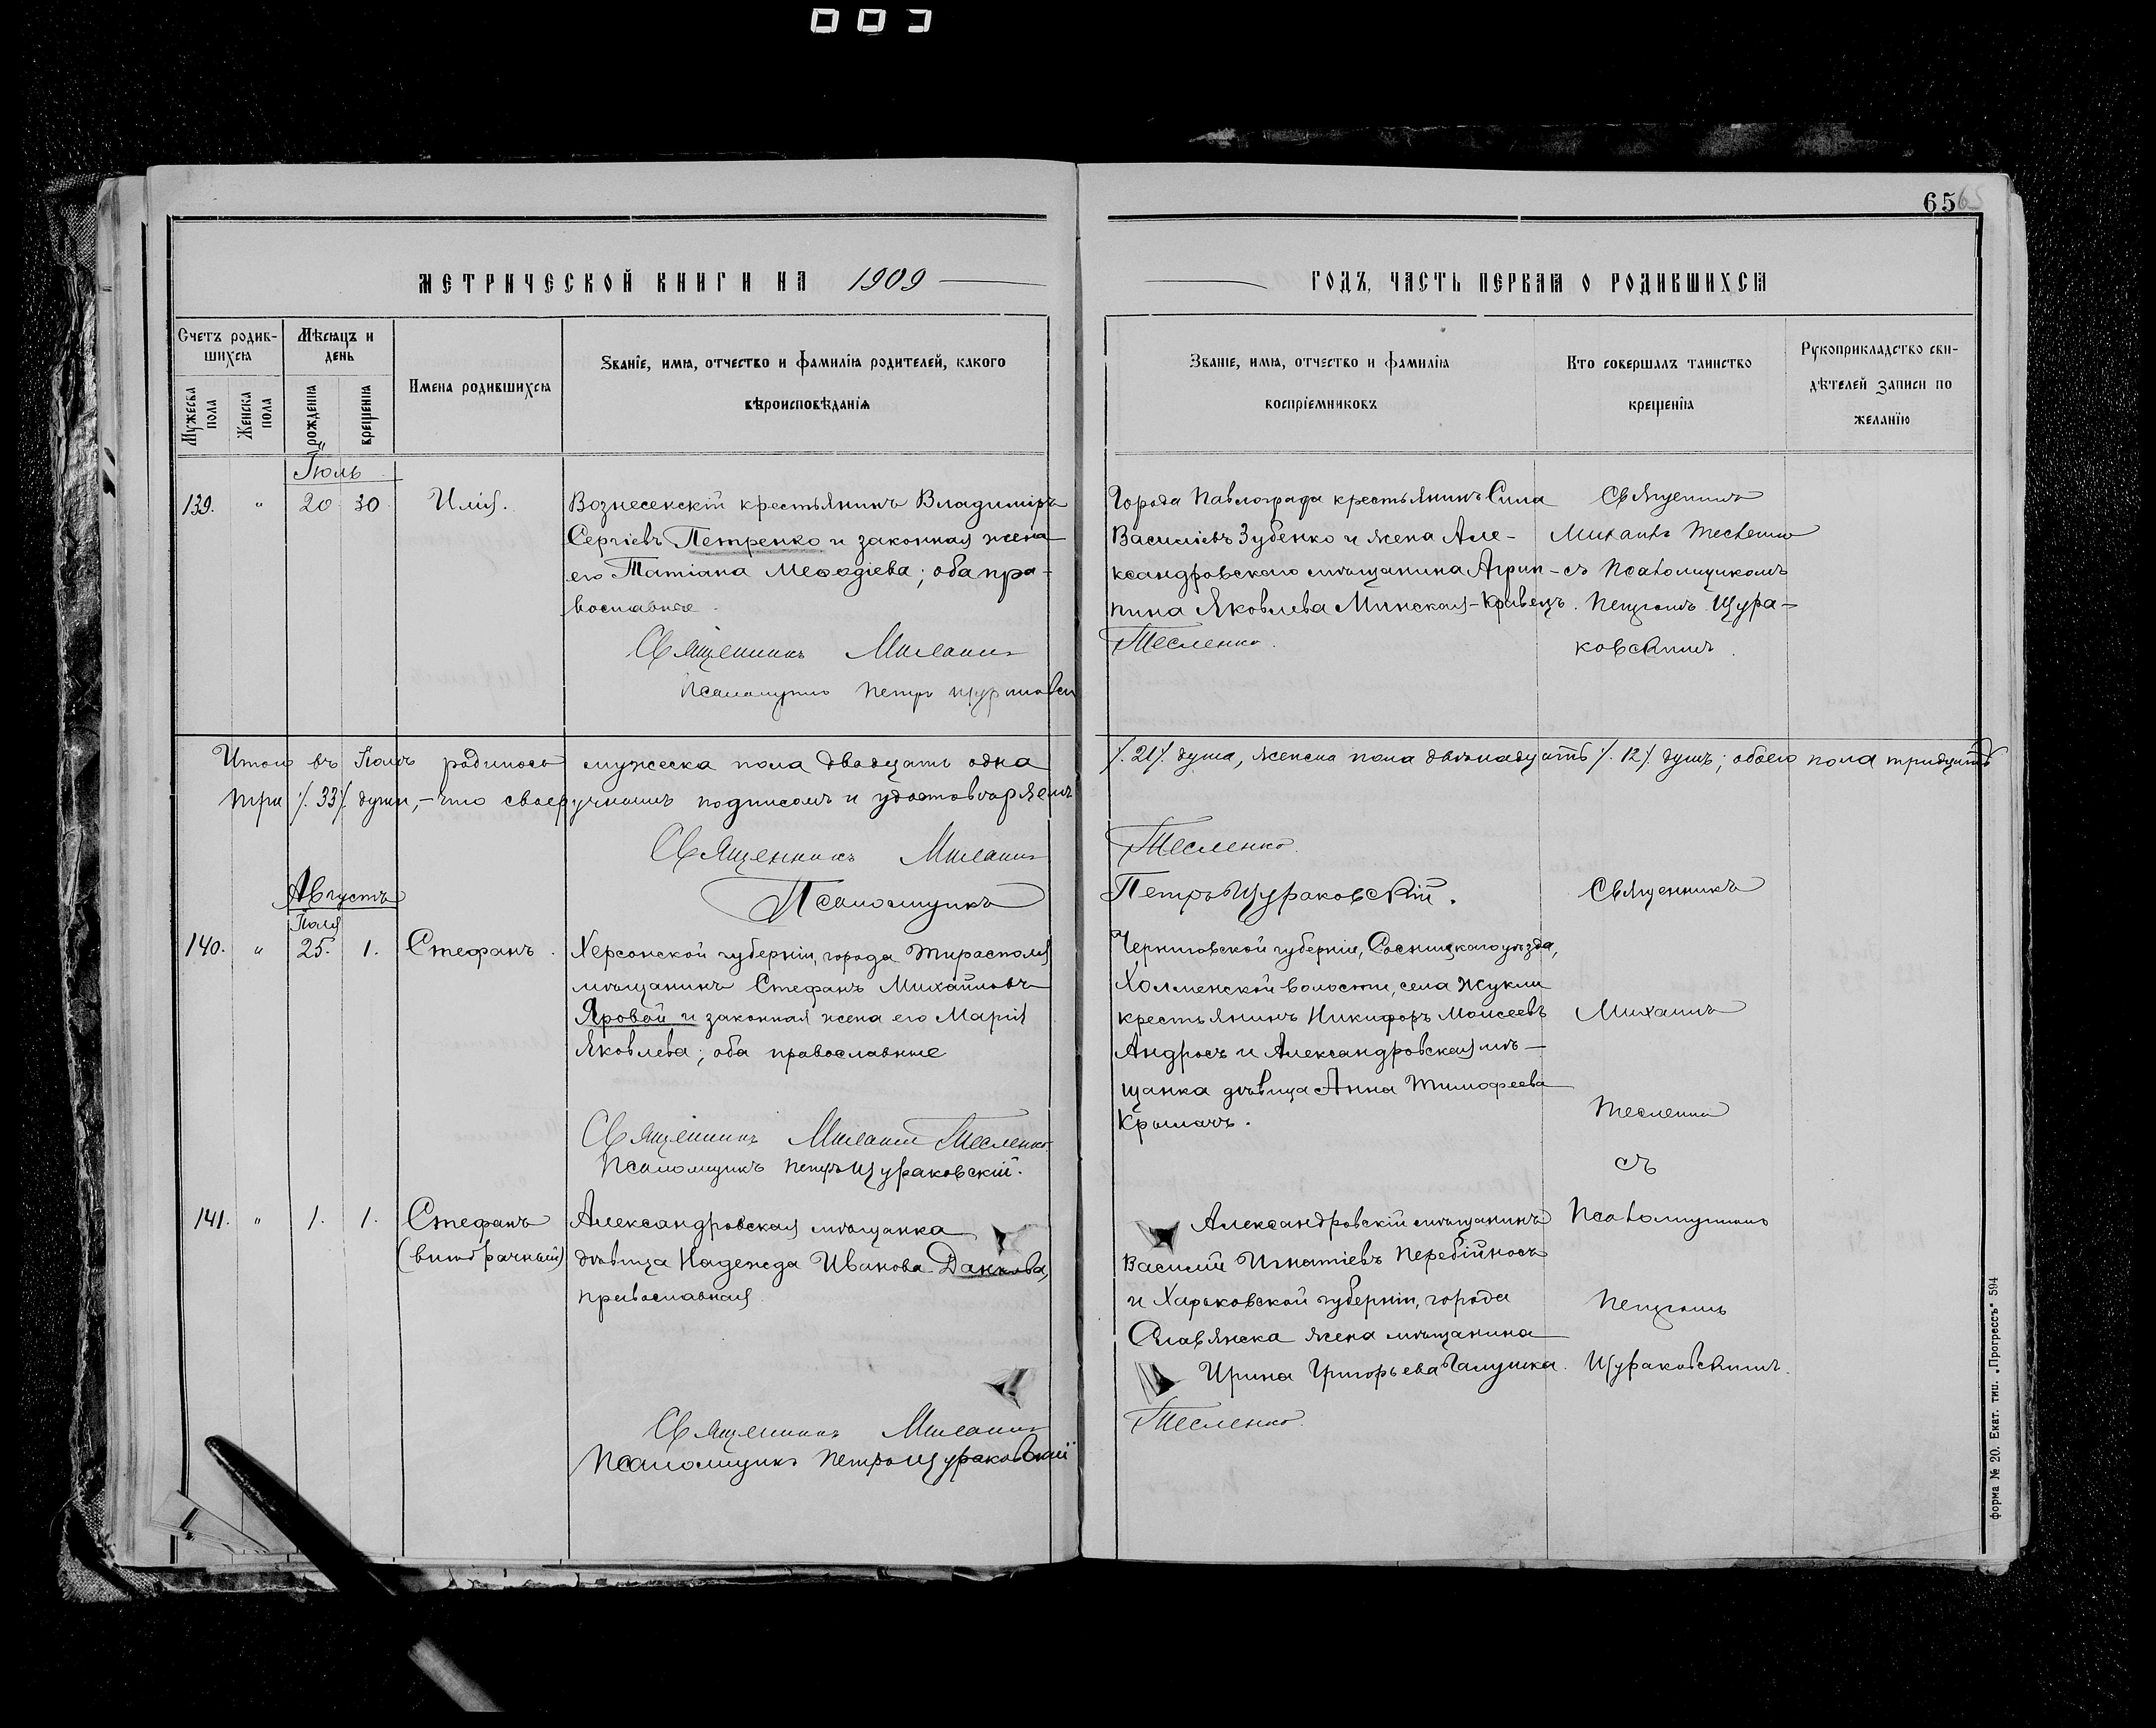 65
65
МЕТРИЧЕСКОЙ КНИГИ НА 1909
ГОДЪ, ЧАСТЬ ПЕРВАЯ О РОДИВШИХСЯ
Счетъ родив-
шихся
Мѣсяцъ и
день
Мужеска
пола
Женска
пола
рожденія
крещенія
Имена родившихся
Званіе, имя, отчество и фамилія родителей, какого
вѣроисповѣданія
Званіе, имя, отчество и фамилія
воспріемниковъ
Кто совершалъ таинство
крещенія
Рукоприкладство сви-
дѣтелей записи по
желанію
Іюль
139. " 20 30 Илія.
Вознесенскій крестьянинъ Владиміръ
Сергіевъ Петренко и законная жена
его Татіана Меѳодіева; оба пра-
вославные.
Священникъ Михаилъ
Псаломщикъ Петръ Щураковскій
Города Павлограда крестьянинъ Сила
Василіевъ Зубенко и жена Але-
ксандровскаго мѣщанина Агрип-
пина Яковлева Минская-Кравецъ.
Тесленко.
Священникъ
Михаилъ Тесленко
съ Псаломщикомъ
Петромъ Щура-
ковскимъ.
Итого въ Іюлѣ родилось мужеска пола двадцать одна
/.21/. душа, женска пола двѣнадцать /.12/. душъ; обоего пола тридцать
три /.33/. души,- что своеручнымъ подписомъ и удостовѣряемъ
Священникъ Михаилъ
Тесленко.
Псаломщикъ
Петръ Щураковскій.
Августъ
Іюля
140. " 25. 1. Стефанъ.
Херсонской губерніи, города Тирасполя
мѣщанинъ Стефанъ Михайловъ
Яровой и законная жена его Марія
Яковлева; оба православные
Священникъ Михаилъ Тесленко
Псаломщикъ Петръ Щураковскій.
Черниговской губерніи, Сосницкаго уѣзда,
Холменской волости, села Жукли
крестьянинъ Никифоръ Моисеевъ
Андросъ и Александровская мѣ-
щанка дѣвица Анна Тимофеева
Крымачъ.
Священникъ
Михаилъ
Тесленко
съ
Псаломщикомъ
Петромъ
Щураковскимъ.
141. " 1. 1. Стефанъ
(внѣбрачный)
Александровская мѣщанка
дѣвица Надежда Иванова Данкова,
православная
Священникъ Михаилъ
Псаломщикъ Петръ Щураковскій
Александровскій мѣщанинъ
Василій Игнатіевъ Перебійносъ
и Харьковской губерніи, города
Славянска жена мѣщанина
Ирина Григорьева Галушка.
Тесленко.
Форма № 20. Екат. тип. „Прогрессъ" 594